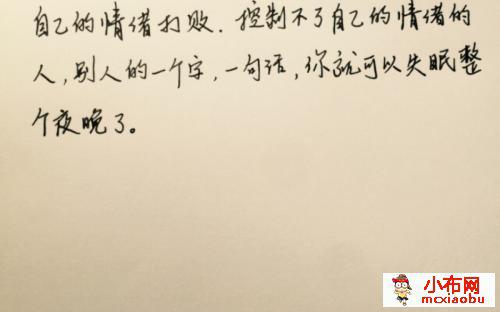 自己的情绪打败．控制不了自己的情绪的
人，别人的一个字，一句话，你就可以失眠整
个夜晚了。
小布网
mcxiaobu